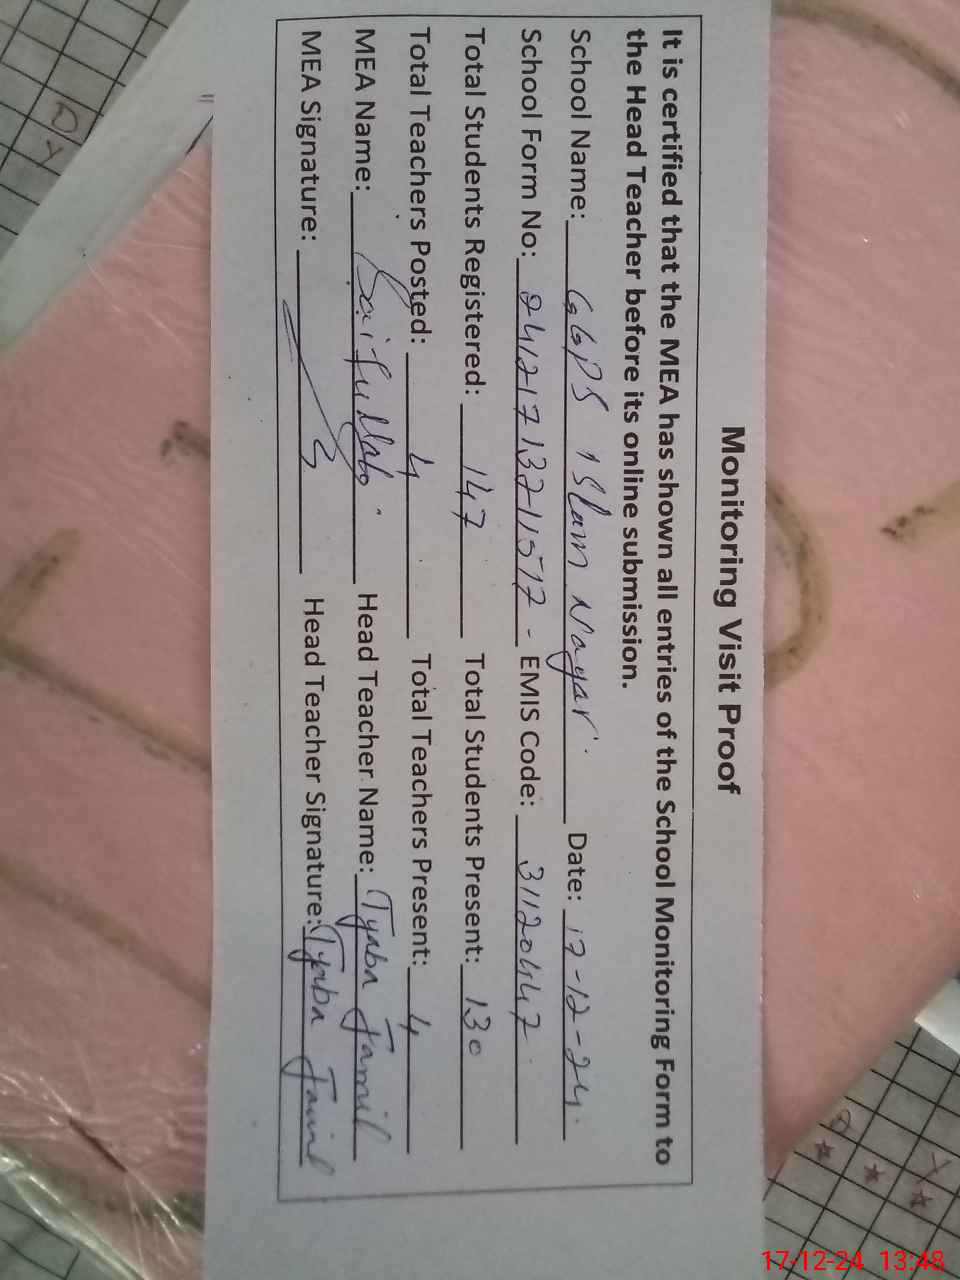 Monitoring Visit Proof
It is certified that the MEA has shown all entries of the School Monitoring Form to
the Head Teacher before its online submission.
School Name: GGPS Islam Nagar Date: 17-12-24
School Form No: 241217137211577 - EMIS Code: 31120447
Total Students Registered: 147 Total Students Present: 130
Total Teachers Posted: 4 Total Teachers Present: 4
MEA Name: Saifullah Head Teacher Name: Tyaba Jamil
MEA Signature: Head Teacher Signature: Tyaba Jamil
17-12-24 13:48